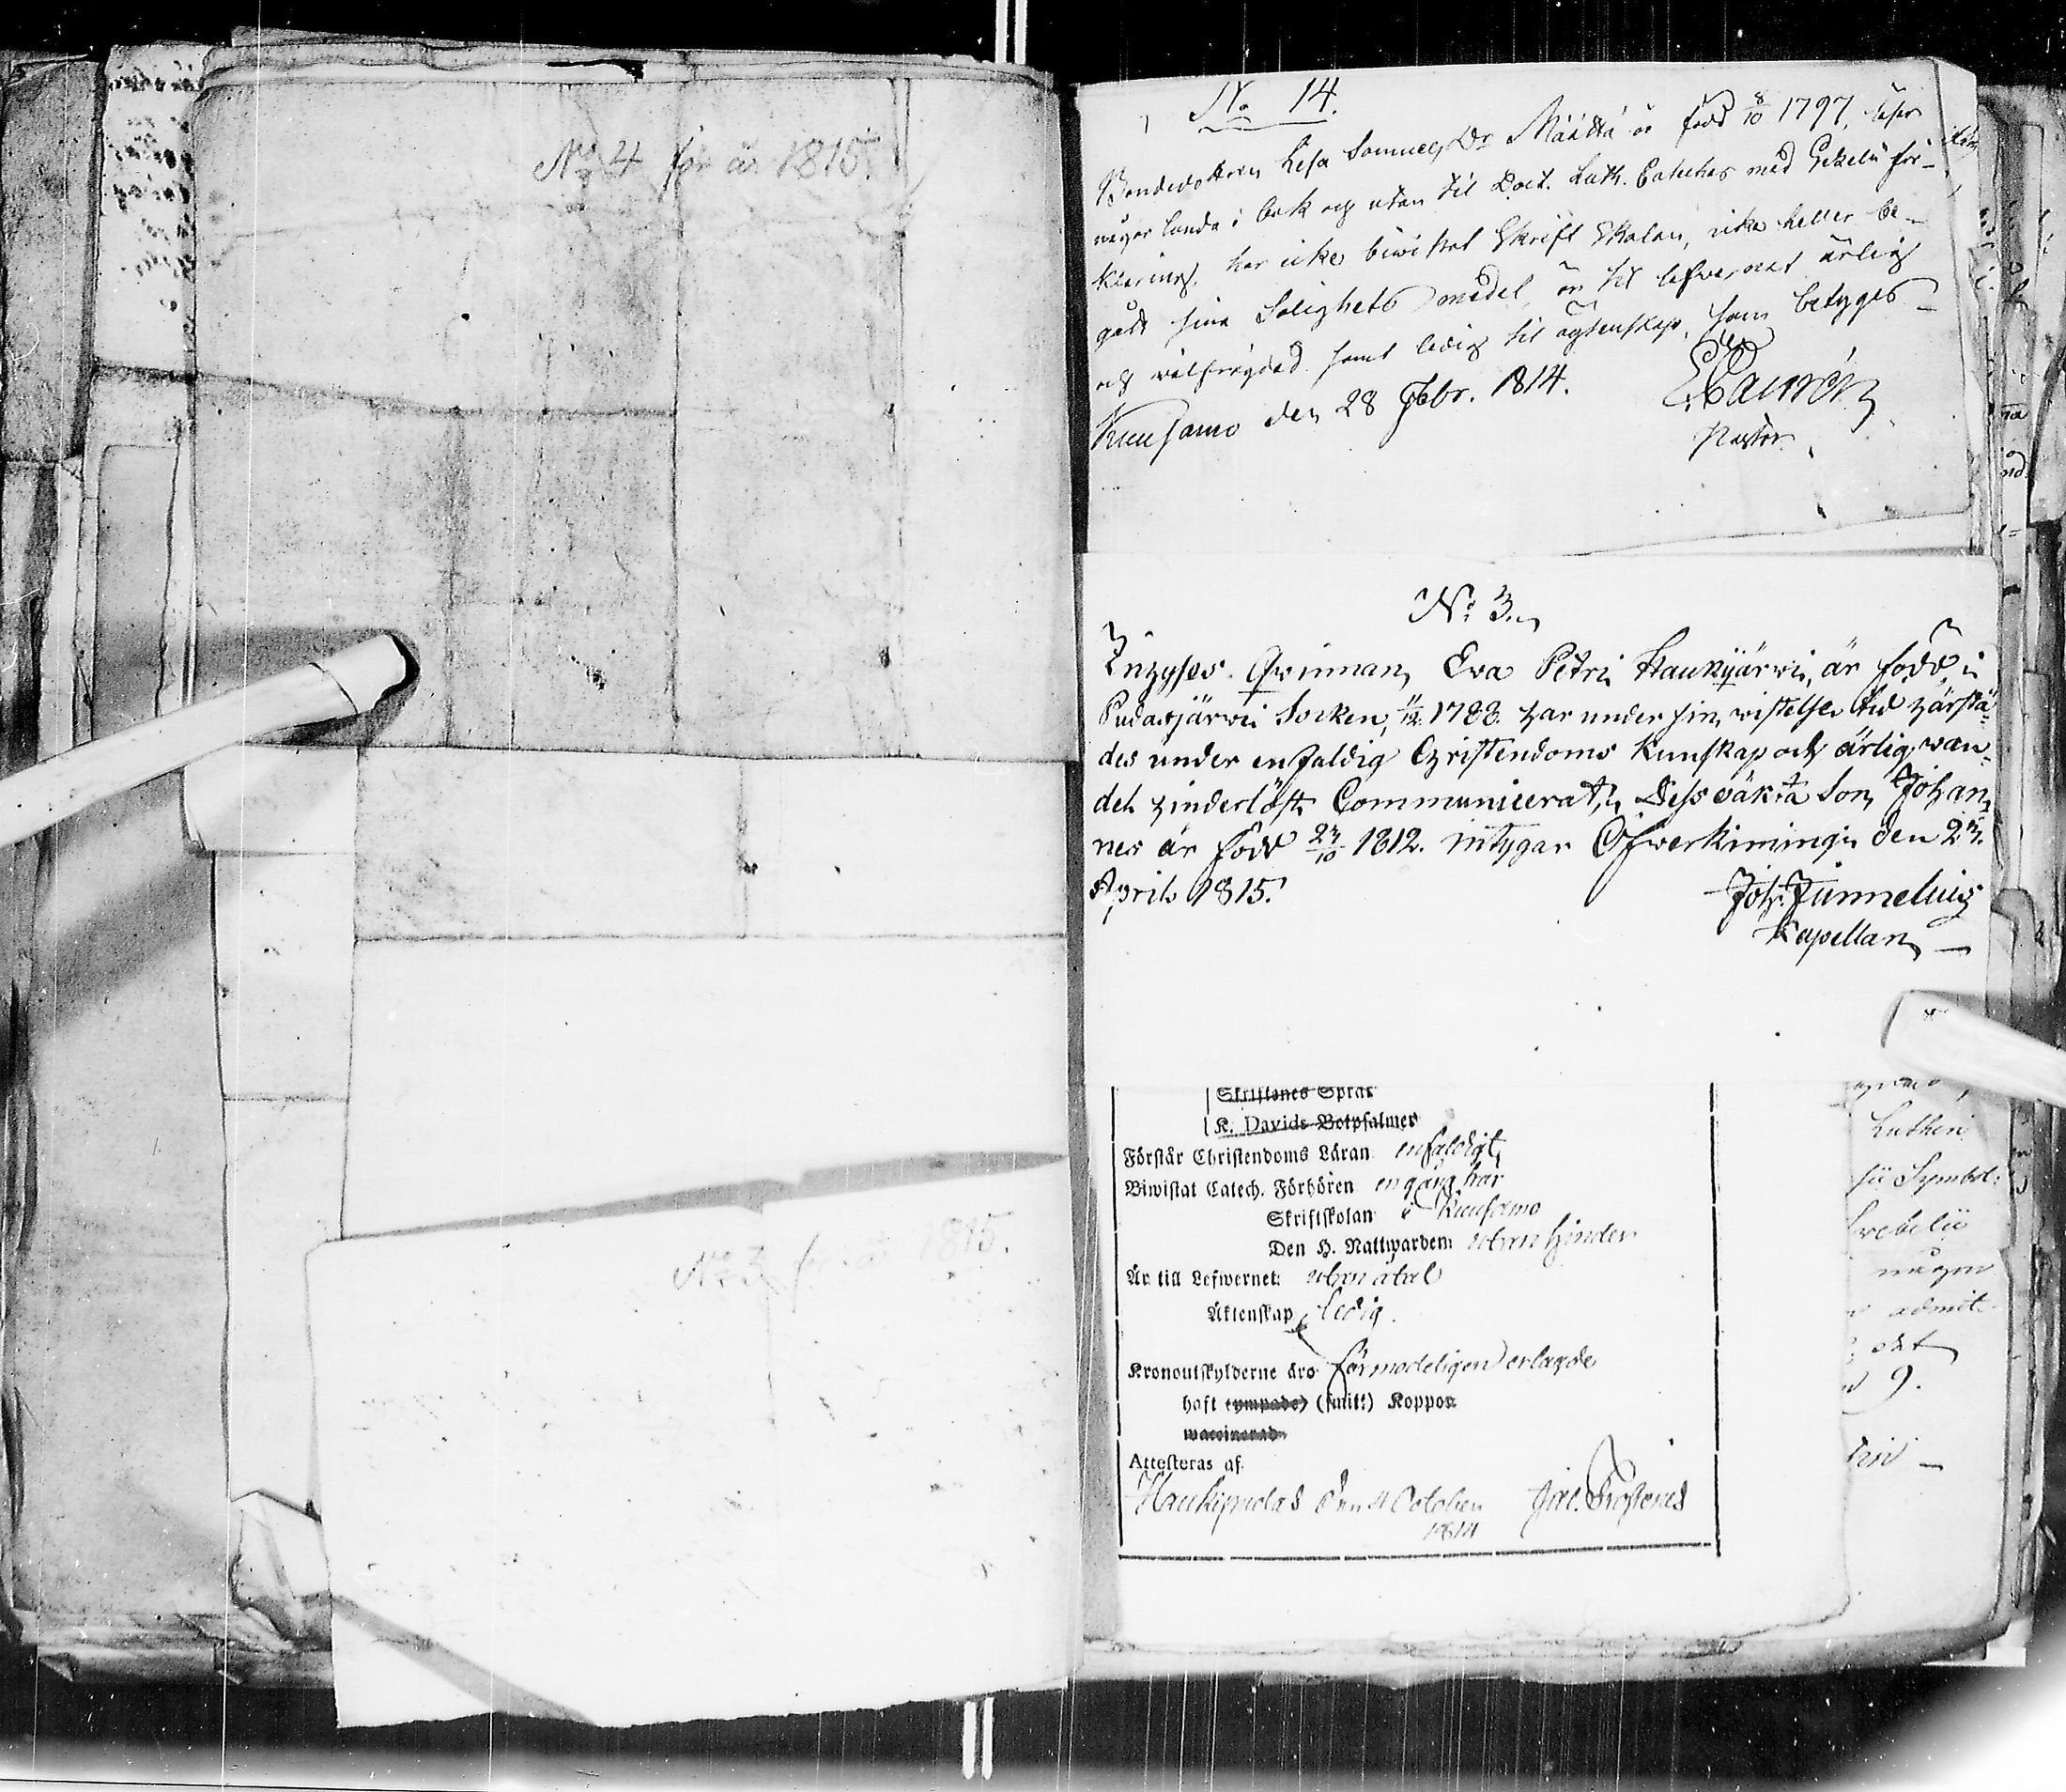 No 4 för år 1815.
No 3 för år 1815.
No 14.
Bondedottren Lisa Samuels Dr Määttä är född 8/10 1797, läser
någorlunda i bok och utan til Doct. Luth. Catches med för-
klaring, har icke biwistat Skrift Skolan, icke heller be-
gådt sina Salighets medel, är til lefwernet ärlig
och wälfrägdad samt ledig til ägtenskap, som betygas
Kuusamo den 28 Febr. 1814.
Pastor.
No 3.
Inhyses Qwinnan Eva Petri Haukijärwi, är född i
Pudasjärwi Socken, 1/12 1788. har under sin wistelse tid härstä-
des under enfaldig Christendoms Kunskap och ärlig wan-
del hinderlöst Communicerat; Dess oäkta Son Johan-
nes är född 27/10 1812. intygar Öfwerkimingi den 27.
April 1815.
Joh. Junnelius
Kapellan
Skriftenes Språk
K. Davids Botpsalmer
Förstår Christendoms Läran enfaldigt
Biwistat Catech. Förhören en gång här
Skriftskolan i Kuusamo
Den H. Nattwarden utan hinder
Är till Lefwernet utan åtal
Äktenskap ledig.
Kronoutskylderne äro förmodeligen erlagde
haft (ympade) (smitt) Koppor
waccinerad
Attesteras af
Haukipudas den 4 October
1814
Luthin
sii Symbol:
någon
admit
9.